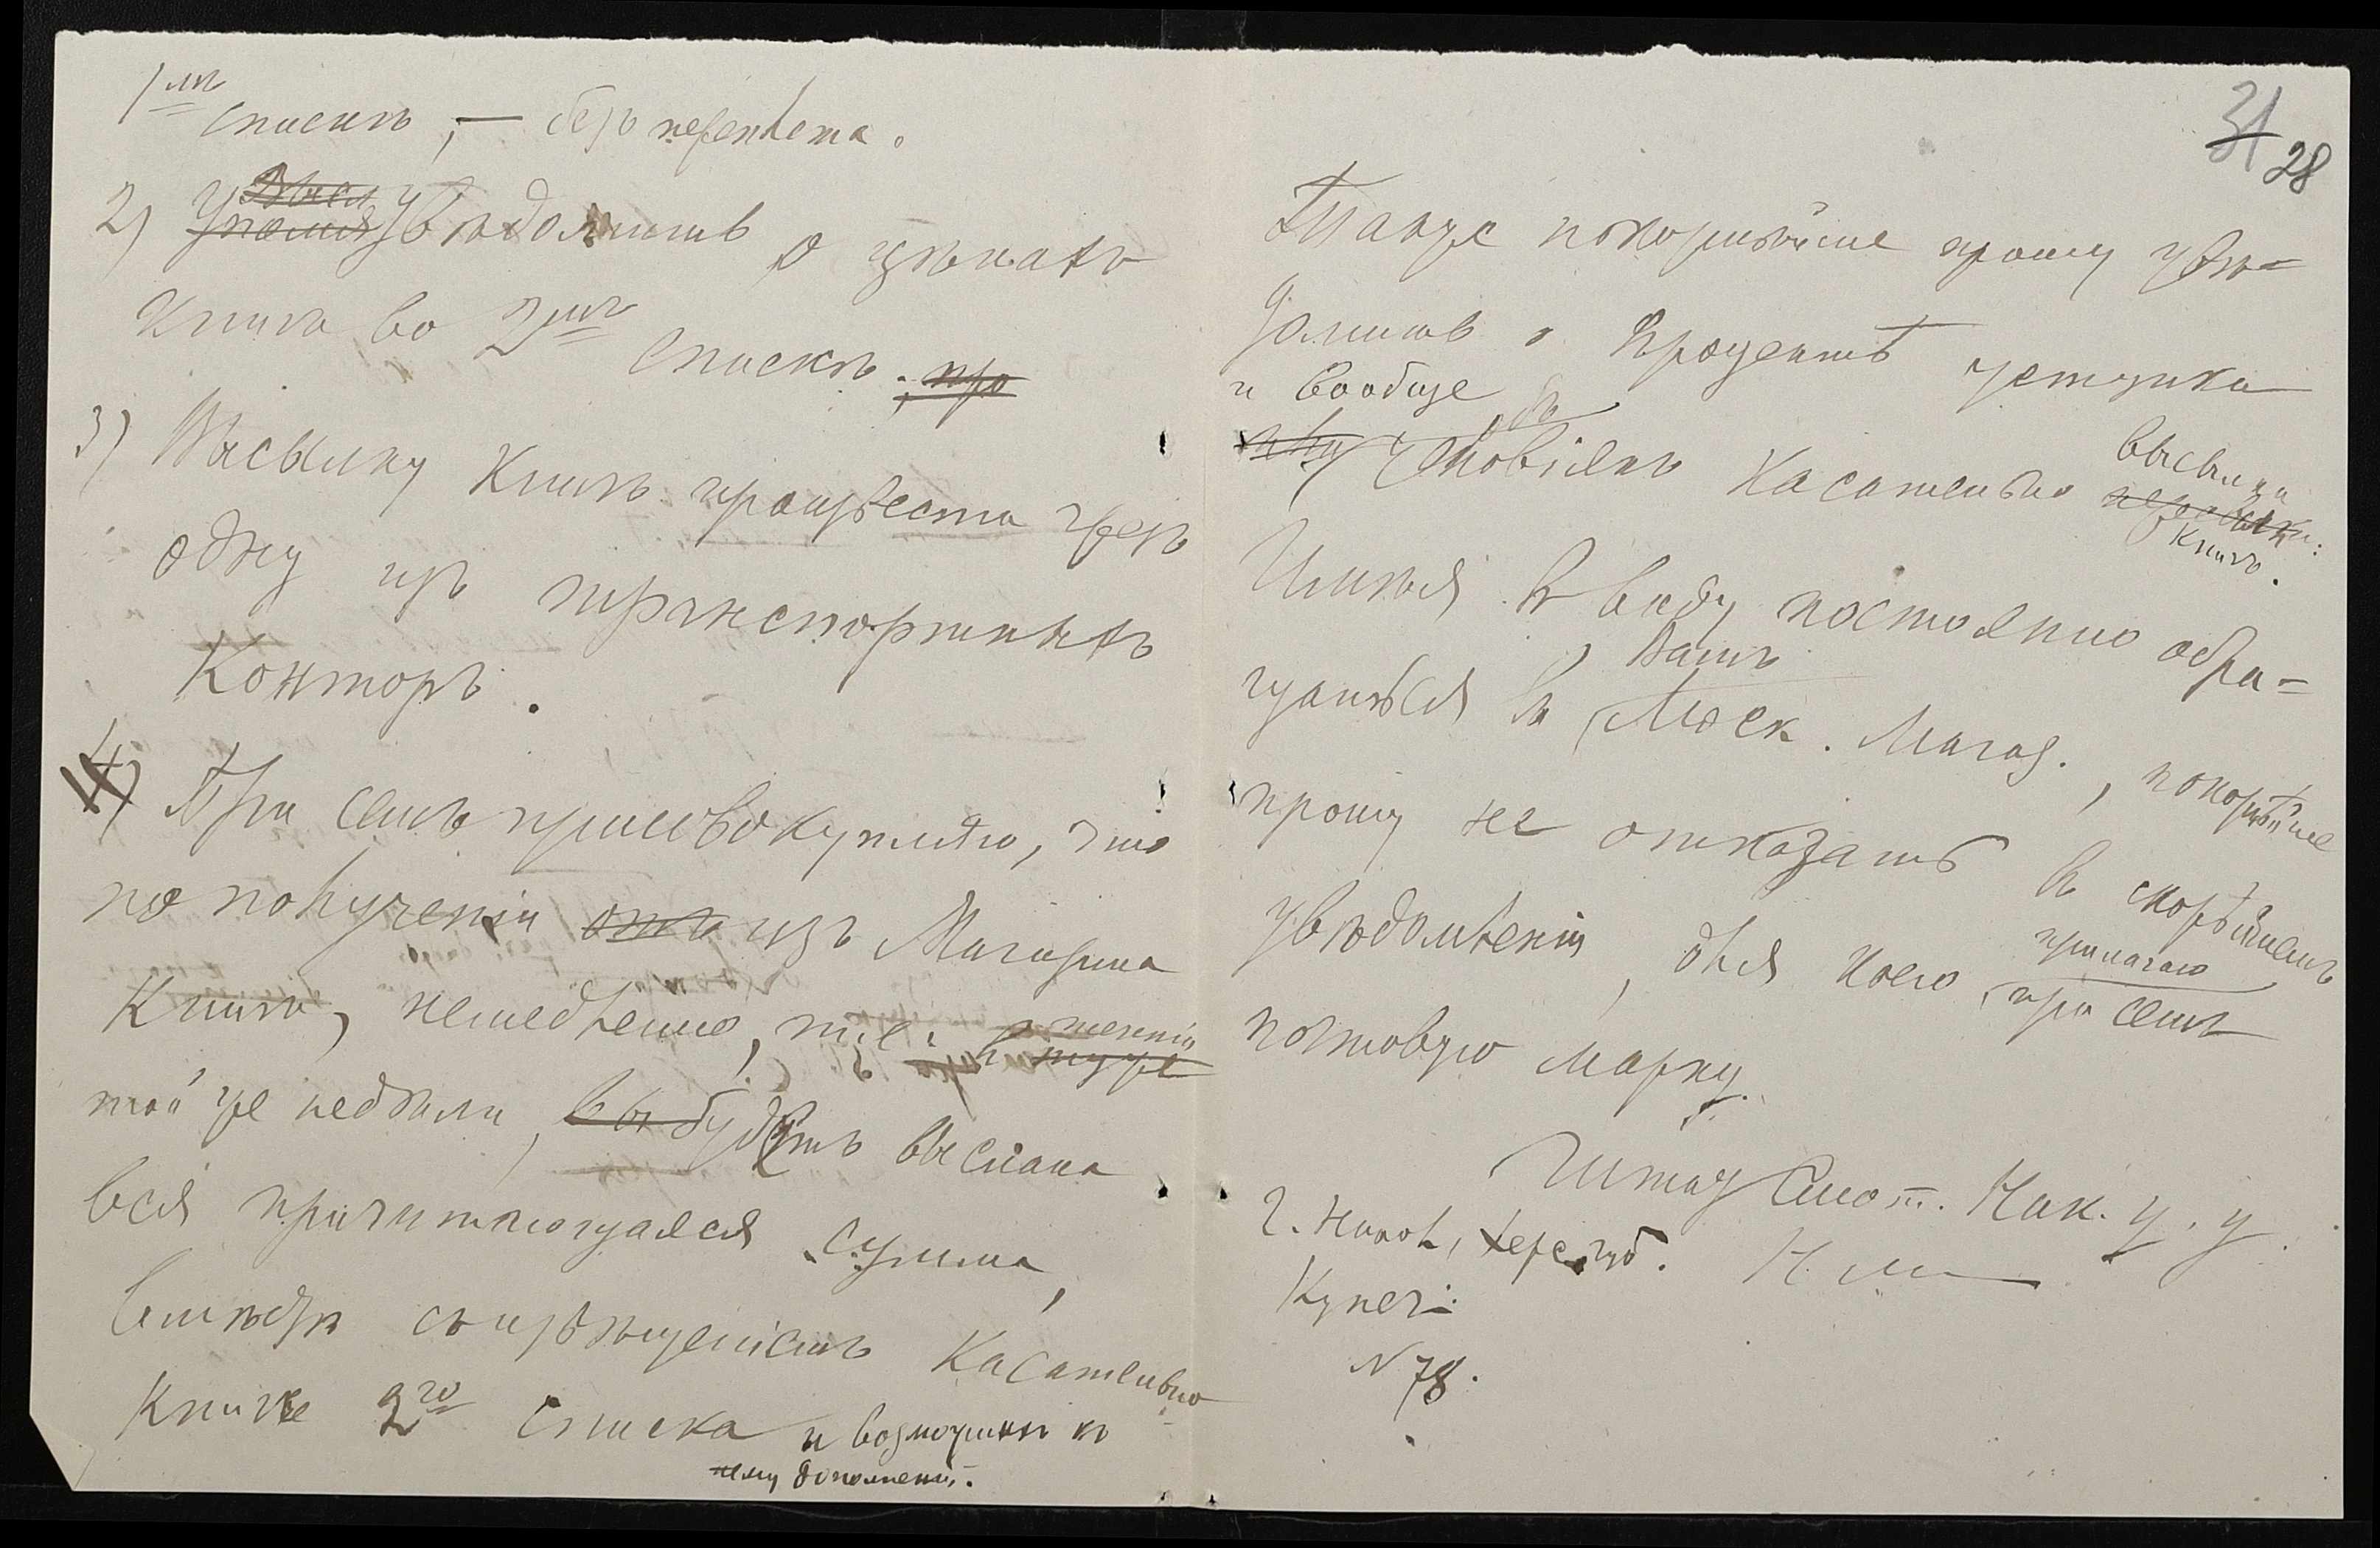 1мъ спискѣ, — безъ переплета.
2) Увѣдомить о цѣнахъ
Книгъ во 2мъ спискѣ; про
3) Высылку Книгъ произвести чрезъ
одну изъ транспортныхъ
Конторъ.
4) При семъ присовокупляю, что
по полученіи отъ изъ Магазина
Книгъ, немедленно, т. е. въ теченіи
той же недѣли, вы будетъ выслана
вся причитающаяся сумма,
вмѣстѣ съ извѣщеніемъ касательно
Книгъ 2го списка и возможныхъ къ
нему дополненій.
31 28
Также покорнѣйше прошу увѣ=
домить о процентѣ уступки
и вообще объ
условіяхъ касательно высылки
книгъ.
Имѣя въ виду постоянно обра=
щаться въ Вашъ Моск. Магаз., покорнѣйше
прошу не отказать въ скорѣйшемъ
увѣдомленіи, для коего прилагаю
при семъ
почтовую марку.
Смот. Ник. у. у.
г. Никол, Херс. губ.
N 78.